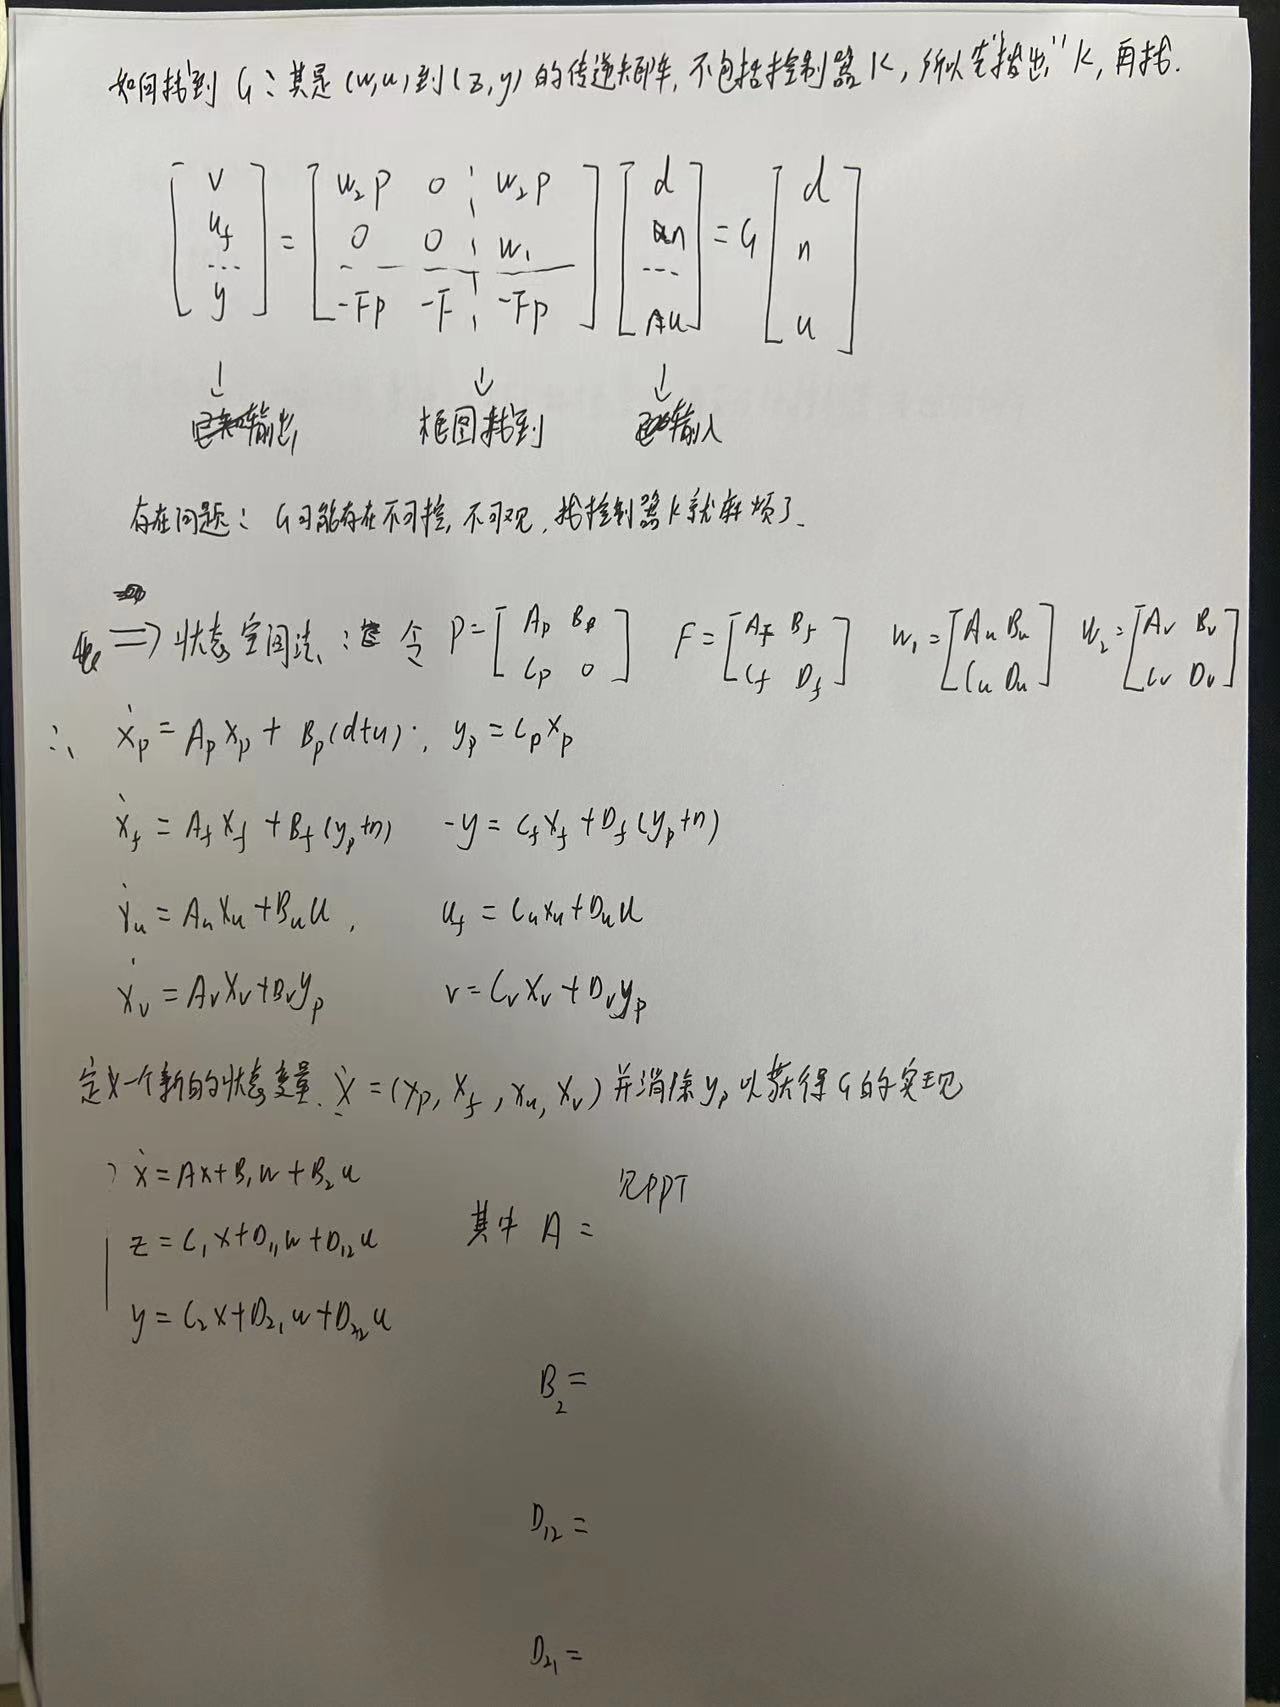 如何找到 G：其是 (w,u) 到 (z,y) 的传递矩阵，不包括控制器 K，所以先"拔出" K，再找.
[v u_f … y] = [W₂P 0 ¦ W₂P; 0 0 ¦ W₁; -FP -F ¦ -FP] [d n … u] = G [d n u]
↓ ↓ ↓
输出 框图找到 输入
存在问题：G可能存在不可控，不可观，找控制器K就麻烦了.
⇒ 状态空间法：令 P=[A_p B_p; C_p 0] F=[A_f B_f; C_f D_f] W₁=[A_u B_u; C_u D_u] W₂=[A_v B_v; C_v D_v]
∴ ẋ_p = A_p x_p + B_p(d+u), y_p = C_p x_p
ẋ_f = A_f x_f + B_f(y_p+n) -y = C_f x_f + D_f(y_p+n)
ẋ_u = A_u x_u + B_u u, u_f = C_u x_u + D_u u
ẋ_v = A_v x_v + B_v y_p v = C_v x_v + D_v y_p
定义一个新的状态变量 ẋ = (x_p, x_f, x_u, x_v) 并消除 y_p 以获得 G 的实现
ẋ = Ax + B₁w + B₂u
见PPT
z = C₁x + D₁₁w + D₁₂u 其中 A =
y = C₂x + D₂₁w + D₂₂u
B₂ =
D₁₂ =
D₂₁ =